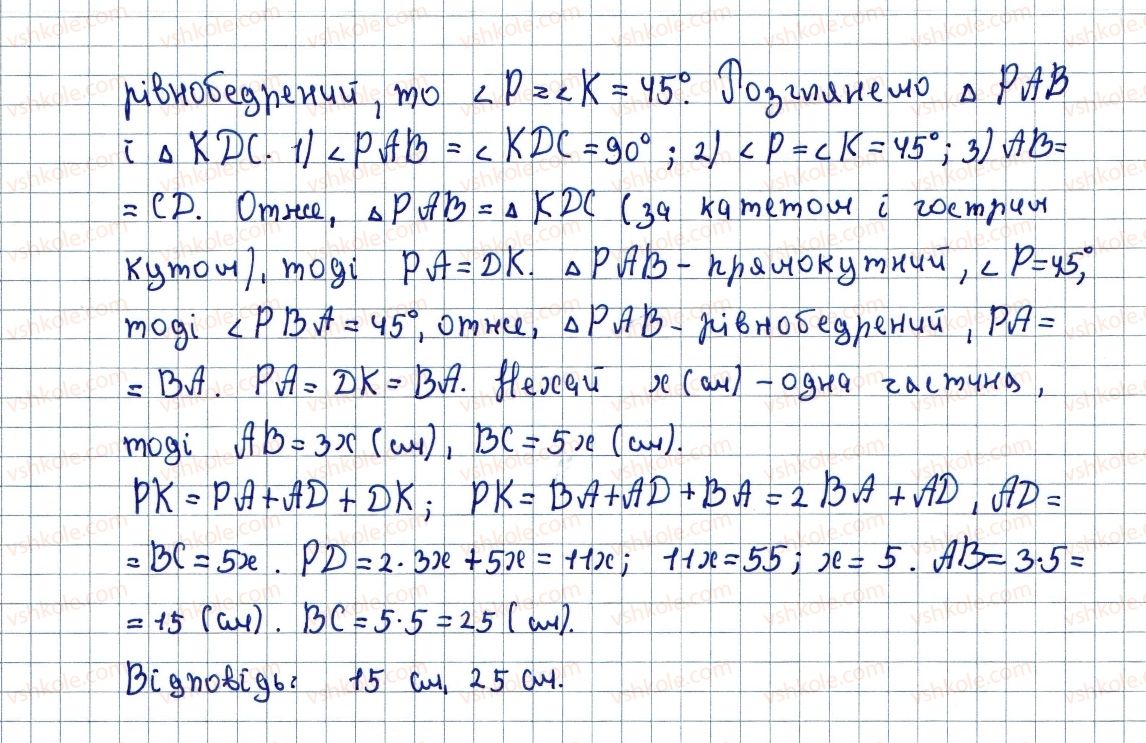 рівнобедрений, то ∠P = ∠K = 45°. Розглянемо △ PAB
і △ KDC. 1) ∠PAB = ∠KDC = 90°; 2) ∠P = ∠K = 45°; 3) AB=
= CD. Отже, △PAB = △ KDC (за катетом і гострим
кутом), тоді PA = DK. △PAB - прямокутний, ∠P=45°,
тоді ∠PBA = 45°, отже, △PAB - рівнобедрений, PA=
= BA. PA = DK = BA. Нехай x (см) - одна частина,
тоді AB = 3x (см), BC = 5x (см).
PK = PA + AD + DK; PK = BA + AD + BA = 2BA + AD, AD=
= BC = 5x. PD = 2·3x + 5x = 11x; 11x = 55; x = 5. AB = 3·5 =
= 15 (см). BC = 5·5 = 25 (см).
Відповідь: 15 см, 25 см.